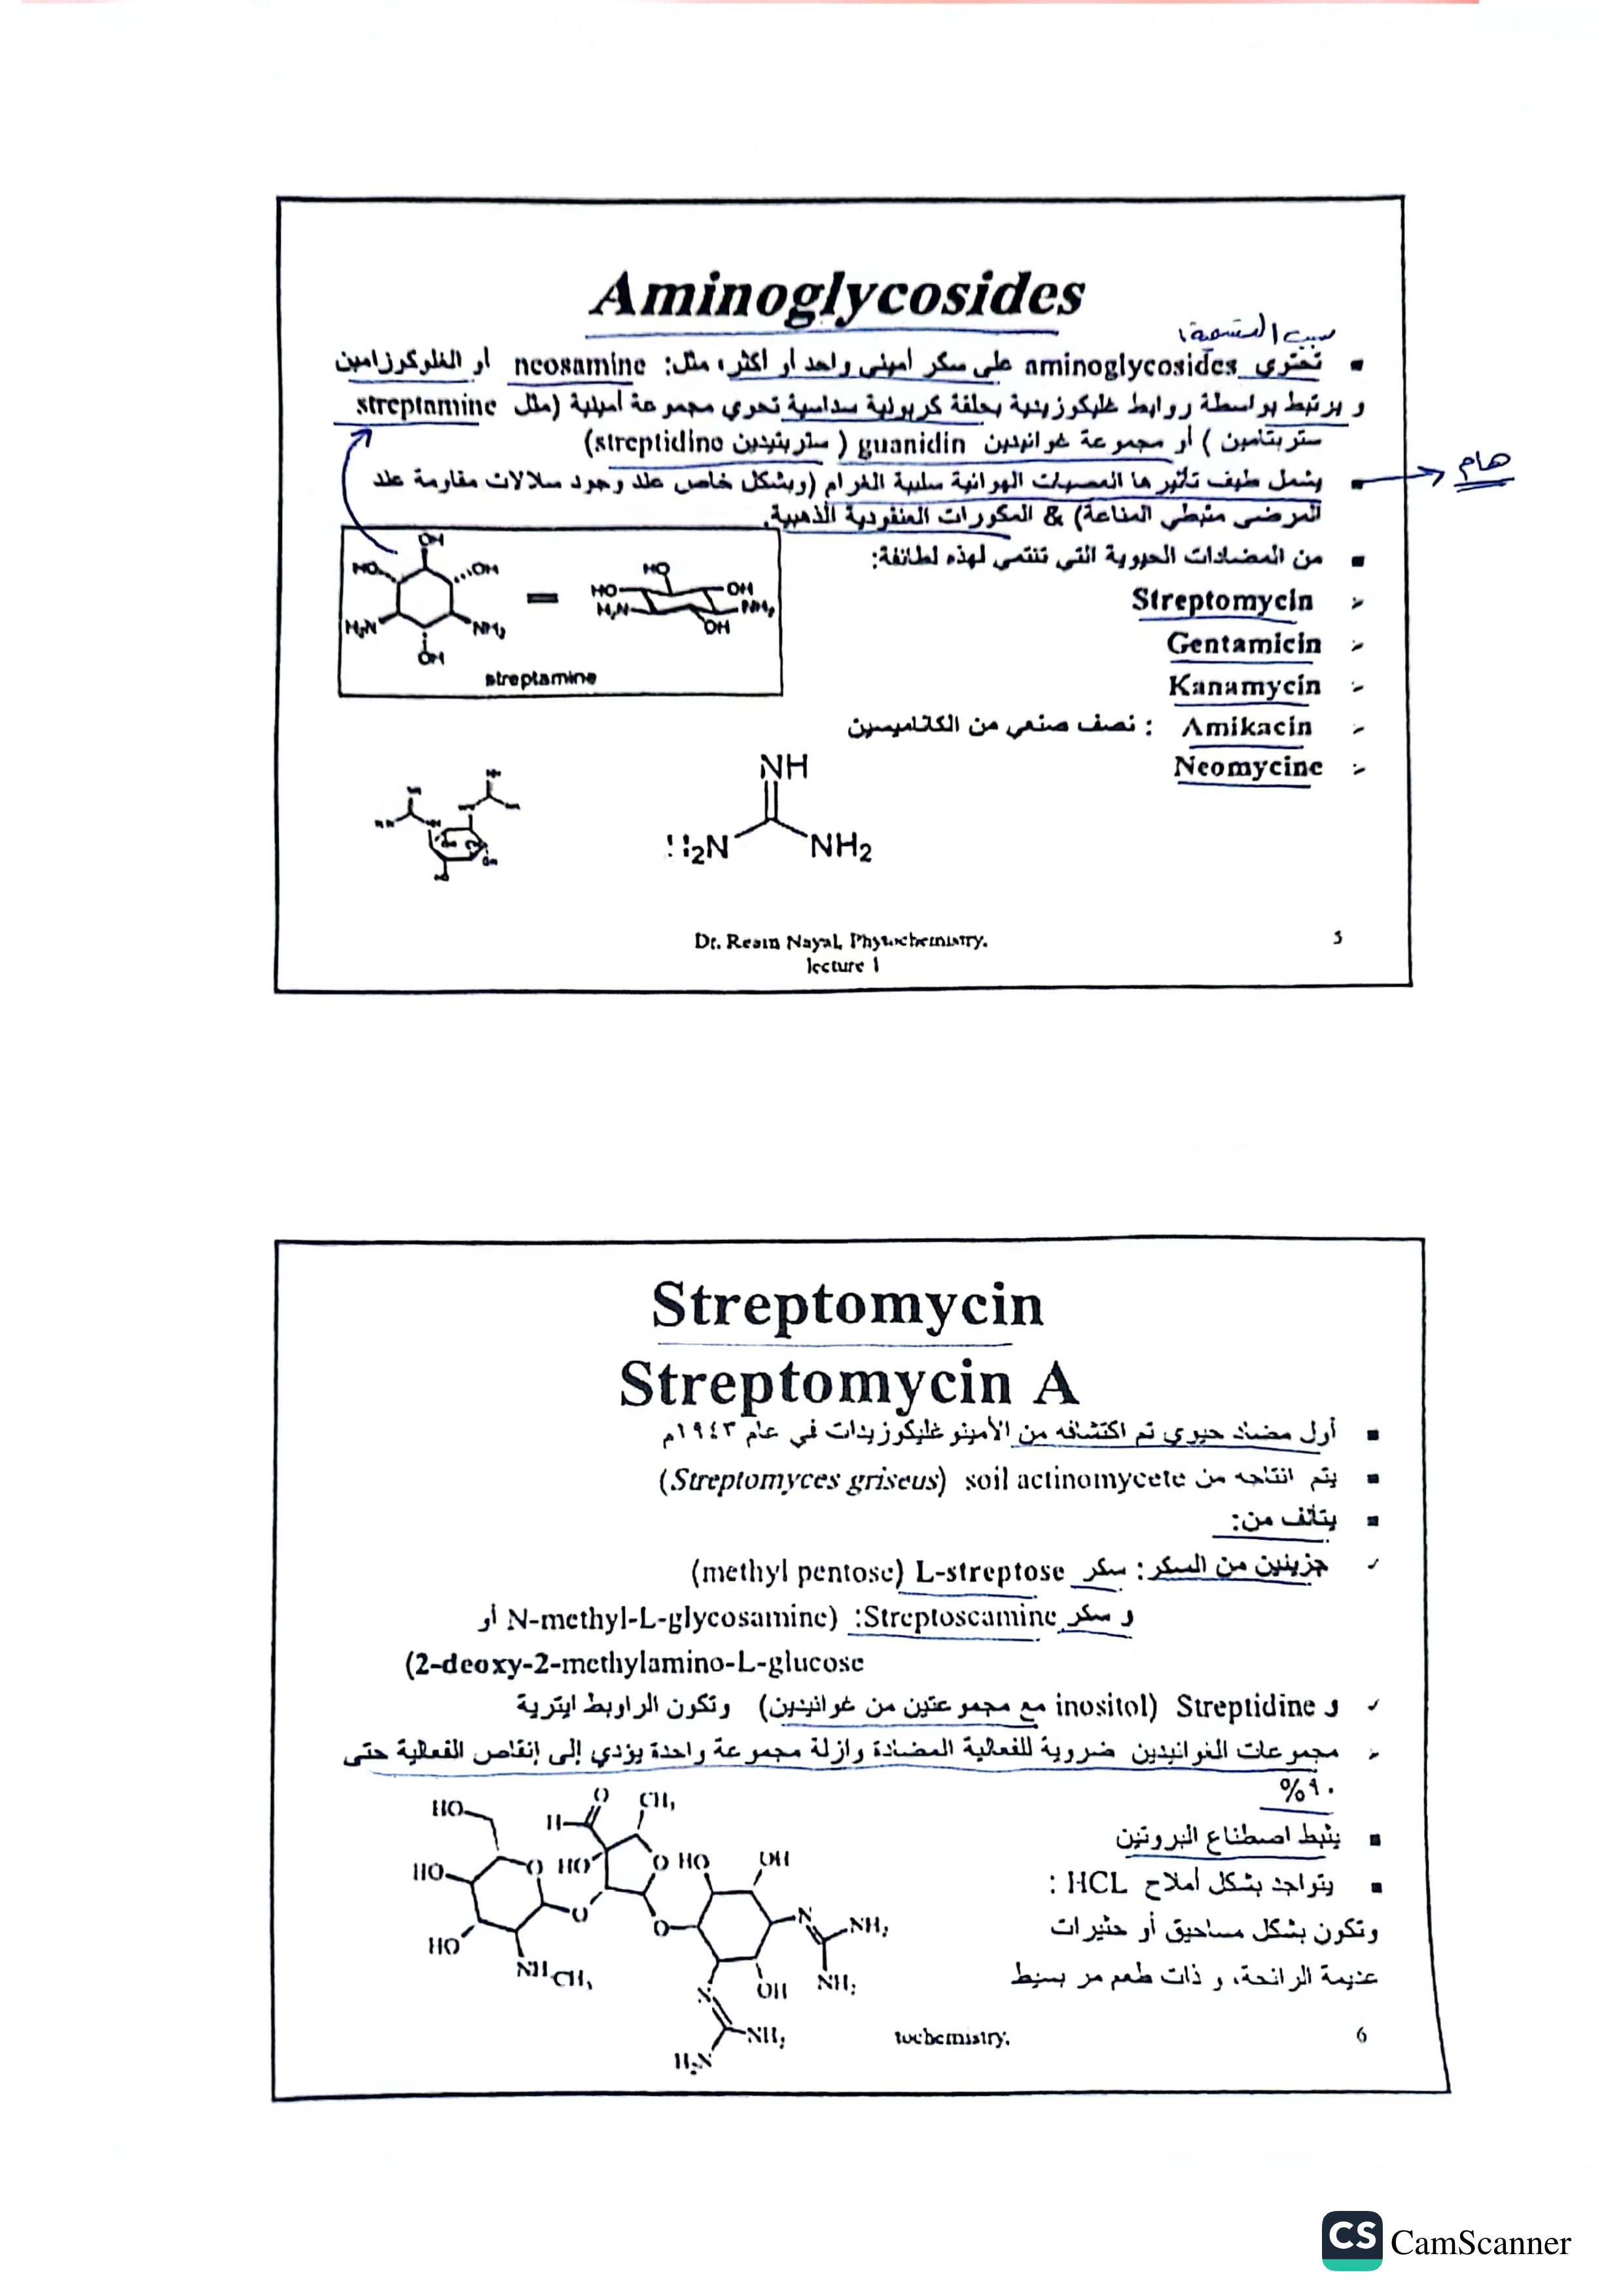 Aminoglycosides
سبب التسمية:
▪ تحتوي aminoglycosides على سكر أميني واحد أو أكثر، مثل: neosamine أو الغلوكوزامين
و يرتبط بواسطة روابط غليكوزيدية بحلقة كربونية سداسية تحوي مجموعة أمينية (مثل streptamine
ستربتامين ) أو مجموعة غوانيدين guanidin ( ستربتيدين streptidine)
▪ يشمل طيف تأثيرها العصيات الهوائية سلبية الغرام (وبشكل خاص عند وجود سلالات مقاومة عند
هام
المرضى مثبطي المناعة) & المكورات العنقودية الذهبية.
▪ من المضادات الحيوية التي تنتمي لهذه لطائفة:
➢ Streptomycin
➢ Gentamicin
➢ Kanamycin
➢ Amikacin : نصف صنعي من الكاناميسين
➢ Neomycine
OH
HO OH
H₂N NH₂
OH
=
HO
HO OH
H₂N NH₂
OH
streptamine
NH
H₂N NH₂
Dr. Reem Nayal, Phytochemistry.
lecture 1
5
Streptomycin
Streptomycin A
▪ أول مضاد حيوي تم اكتشافه من الأمينو غليكوزيدات في عام ١٩٤٣م
▪ يتم انتاجه من soil actinomycete (Streptomyces griseus)
▪ يتألف من:
✓ جزيئين من السكر: سكر L-streptose (methyl pentose)
و سكر Streptoscamine: (N-methyl-L-glycosamine أو
2-deoxy-2-methylamino-L-glucose)
✓ و Streptidine (inositol مع مجموعتين من غوانيدين) وتكون الراوبط ايترية
➢ مجموعات الغوانيدين ضروية للفعالية المضادة وازلة مجموعة واحدة يؤدي إلى إنقاص الفعالية حتى
٩٠%
▪ يثبط اصطناع البروتين
▪ يتواجد بشكل أملاح HCL :
وتكون بشكل مساحيق أو حثيرات
عديمة الرائحة، و ذات طعم مر بسيط
HO O CH₃
H
HO O HO O HO OH
HO O O N NH₂
NH CH₃ N OH NH₂
NH₂
H₂N
tochemistry.
6
CS CamScanner